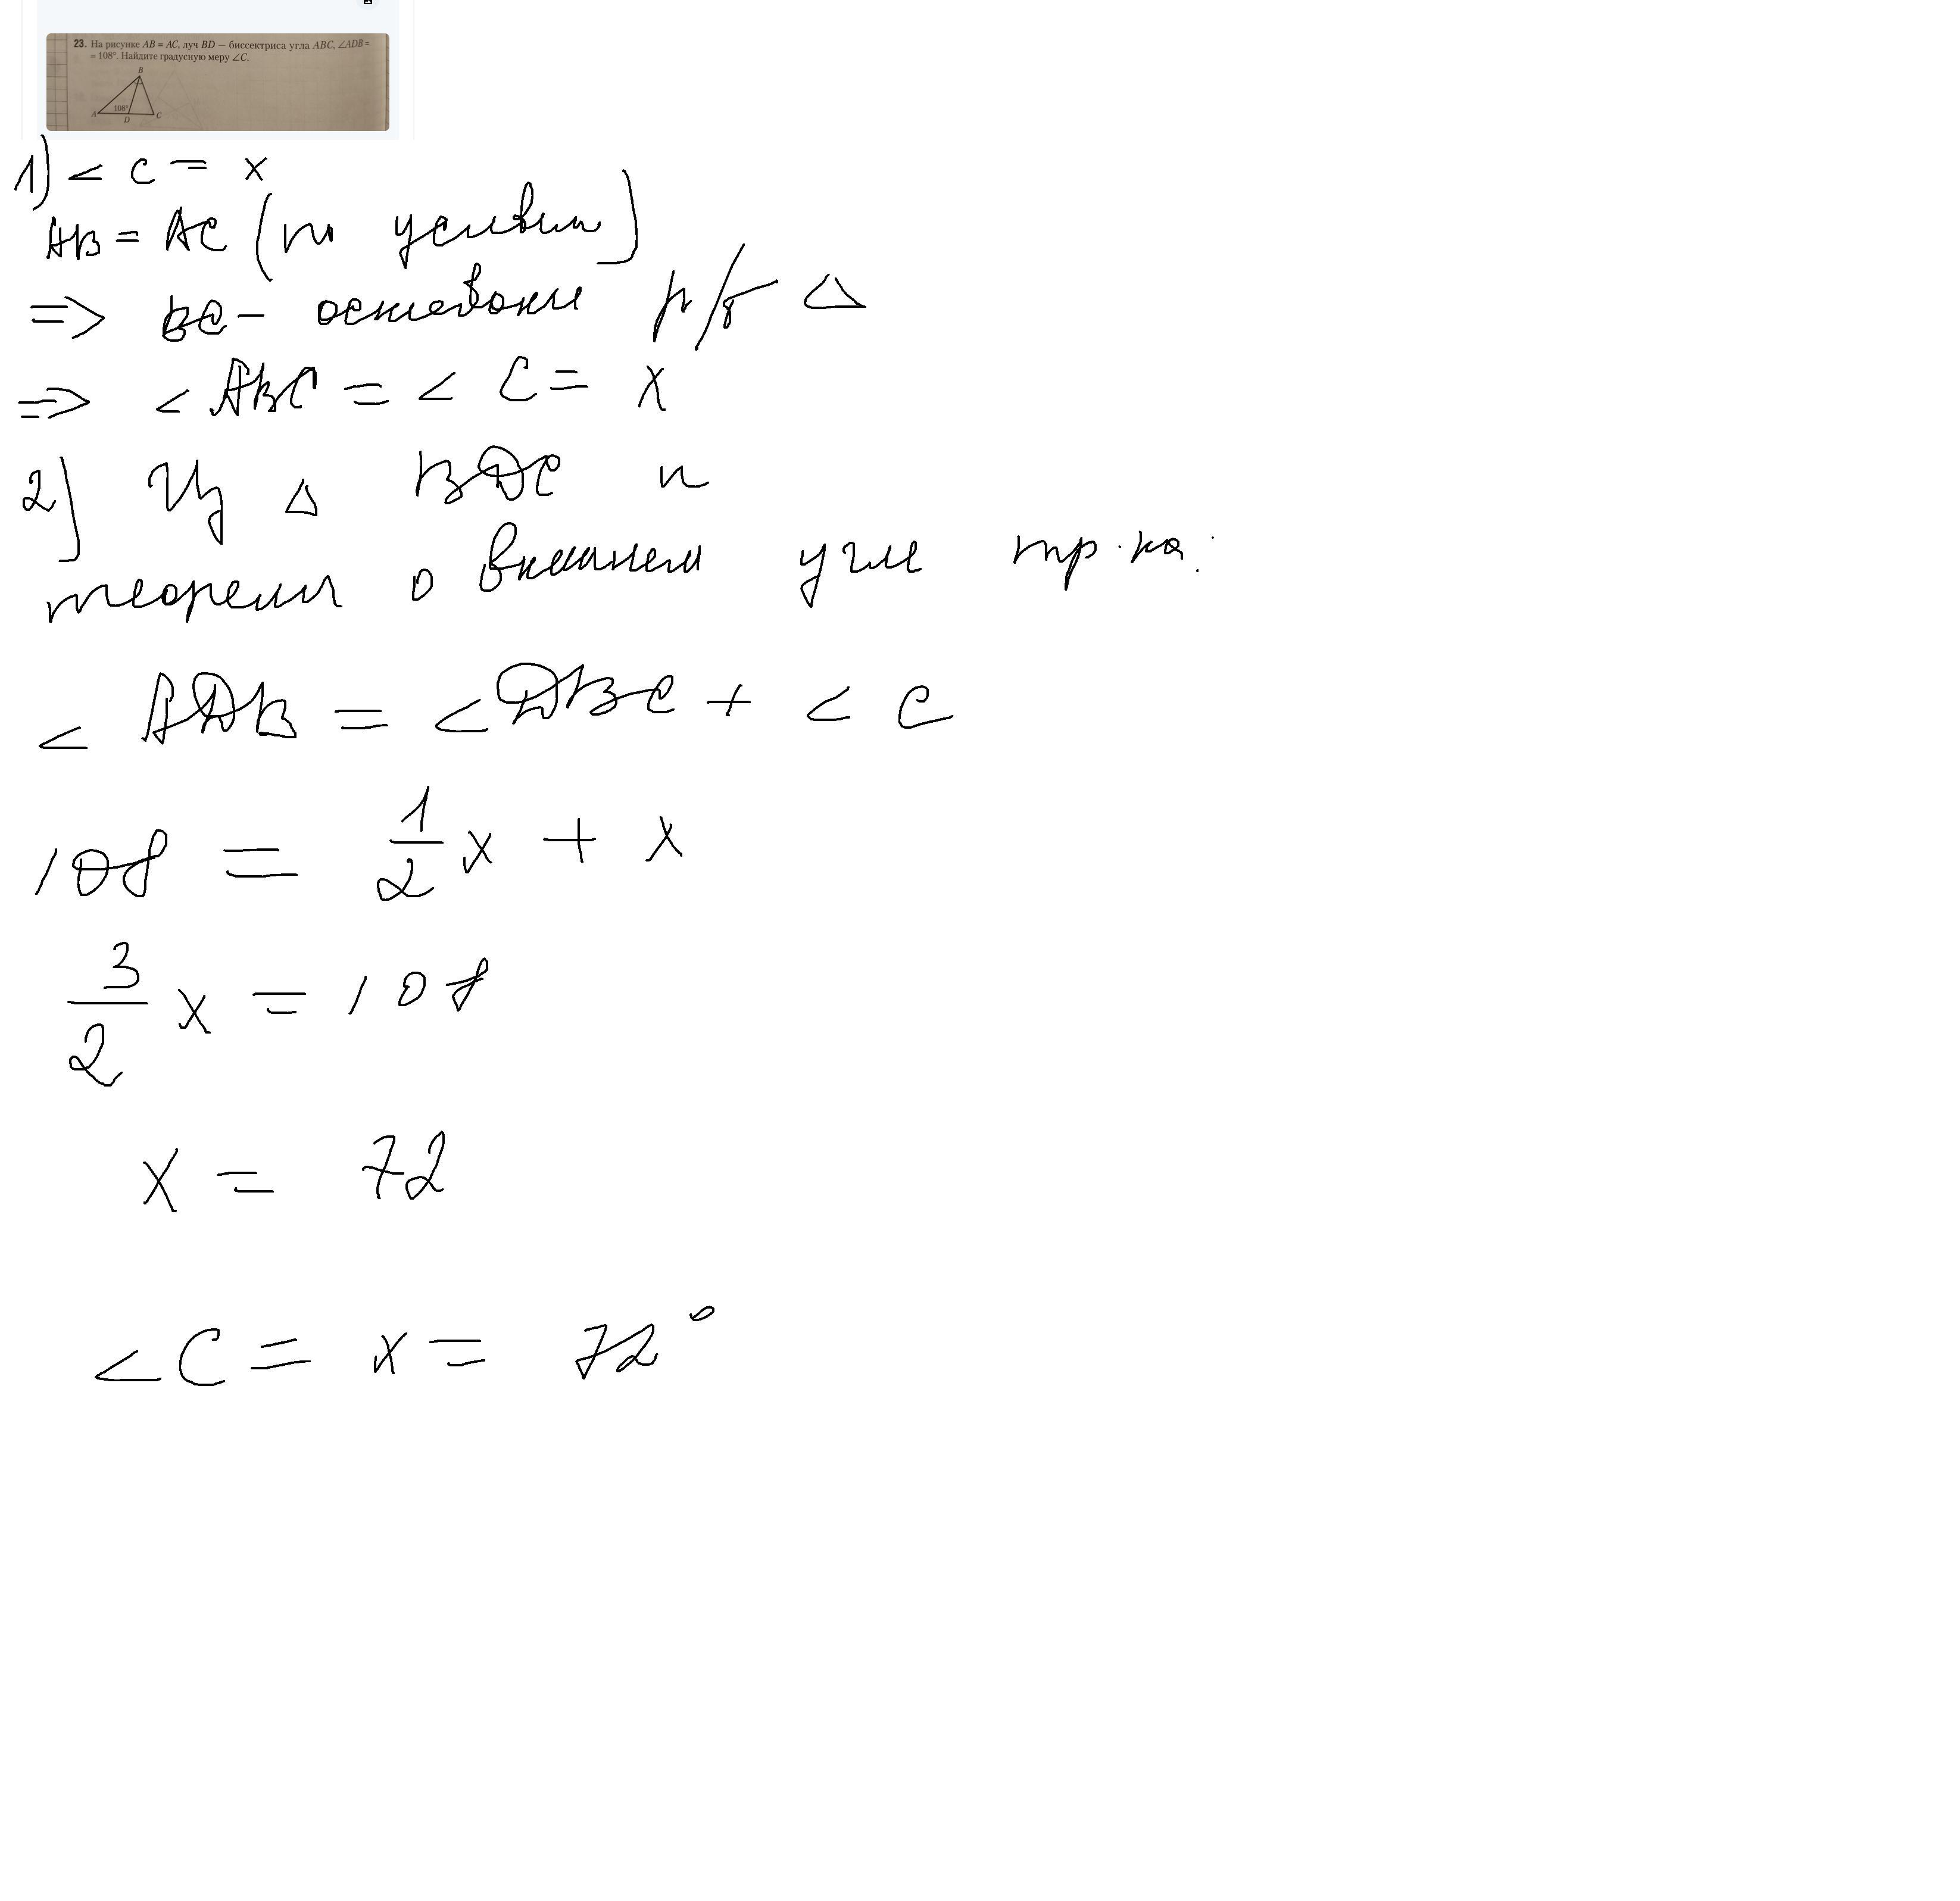 23. На рисунке AB = AC, луч BD — биссектриса угла ABC, ∠ADB =
= 108°. Найдите градусную меру ∠C.
B
108°
A
D
C
1) < C = x
AB = AC (по условию)
=> BC - основание р/б △
=> < ABC = < C = x
2) Из △ BDC и
теореме о внешнем угле тр-ка:
< ADB = < DBC + < C
108 = 1/2 x + x
3/2 x = 108
x = 72
< C = x = 72°